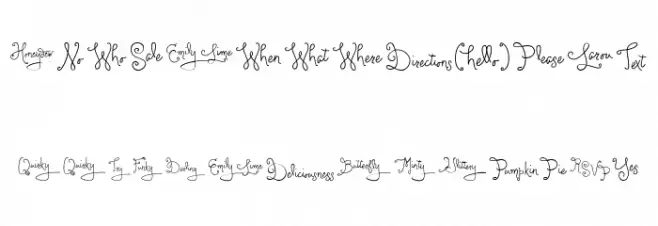 Honeydew No Who Sale Emily Lime When What Where Directions (hello) Please Text
Quirky Quirky Try Funky Darling Emily Lime Deliciousness Butterfly Minty Pumpkin Pie RSVP Yes